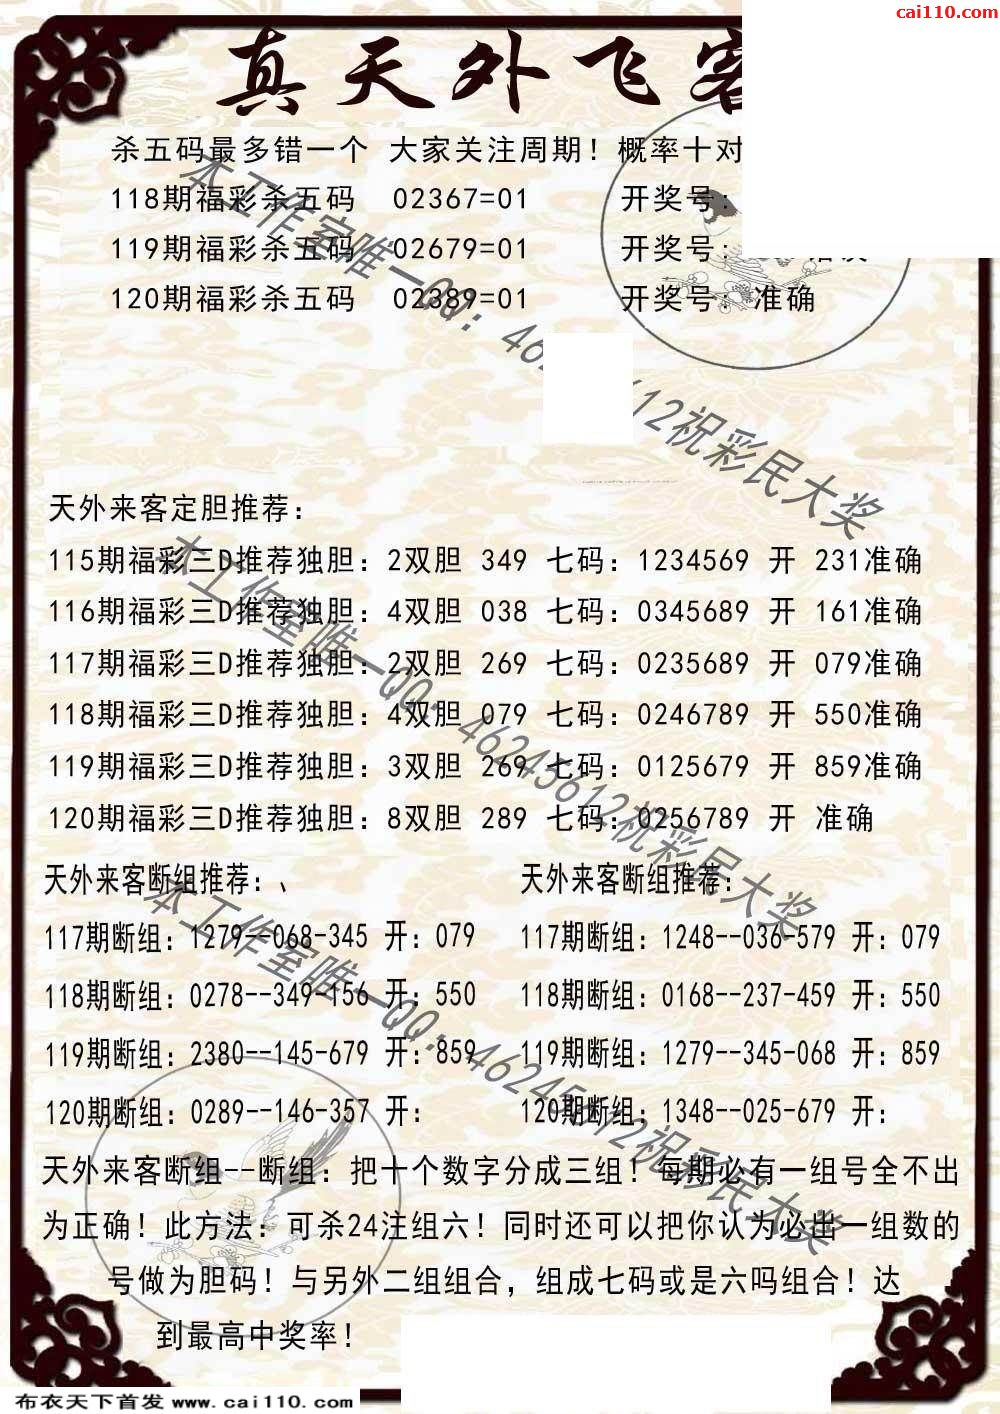 cai110.com
真天外飞客
杀五码最多错一个 大家关注周期！概率十对
118期福彩杀五码 02367=01 开奖号:
119期福彩杀五码 02679=01 开奖号:
120期福彩杀五码 02389=01 开奖号: 准确
本工作室唯一QQ: 46245612祝彩民大奖
天外来客定胆推荐:
115期福彩三D推荐独胆: 2双胆 349 七码: 1234569 开 231准确
116期福彩三D推荐独胆: 4双胆 038 七码: 0345689 开 161准确
117期福彩三D推荐独胆: 2双胆 269 七码: 0235689 开 079准确
118期福彩三D推荐独胆: 4双胆 079 七码: 0246789 开 550准确
119期福彩三D推荐独胆: 3双胆 269 七码: 0125679 开 859准确
120期福彩三D推荐独胆: 8双胆 289 七码: 0256789 开 准确
本工作室唯一QQ: 46245612祝彩民大奖
天外来客断组推荐: 、 天外来客断组推荐:
117期断组: 1279--068-345 开: 079 117期断组: 1248--036-579 开: 079
118期断组: 0278--349-156 开: 550 118期断组: 0168--237-459 开: 550
119期断组: 2380--145-679 开: 859 119期断组: 1279--345-068 开: 859
120期断组: 0289--146-357 开: 120期断组: 1348--025-679 开:
本工作室唯一QQ: 46245612祝彩民大奖
天外来客断组--断组: 把十个数字分成三组！每期必有一组号全不出
为正确！此方法: 可杀24注组六！同时还可以把你认为必出一组数的
号做为胆码！与另外二组组合, 组成七码或是六吗组合！达
到最高中奖率！
布衣天下首发 www.cai110.com